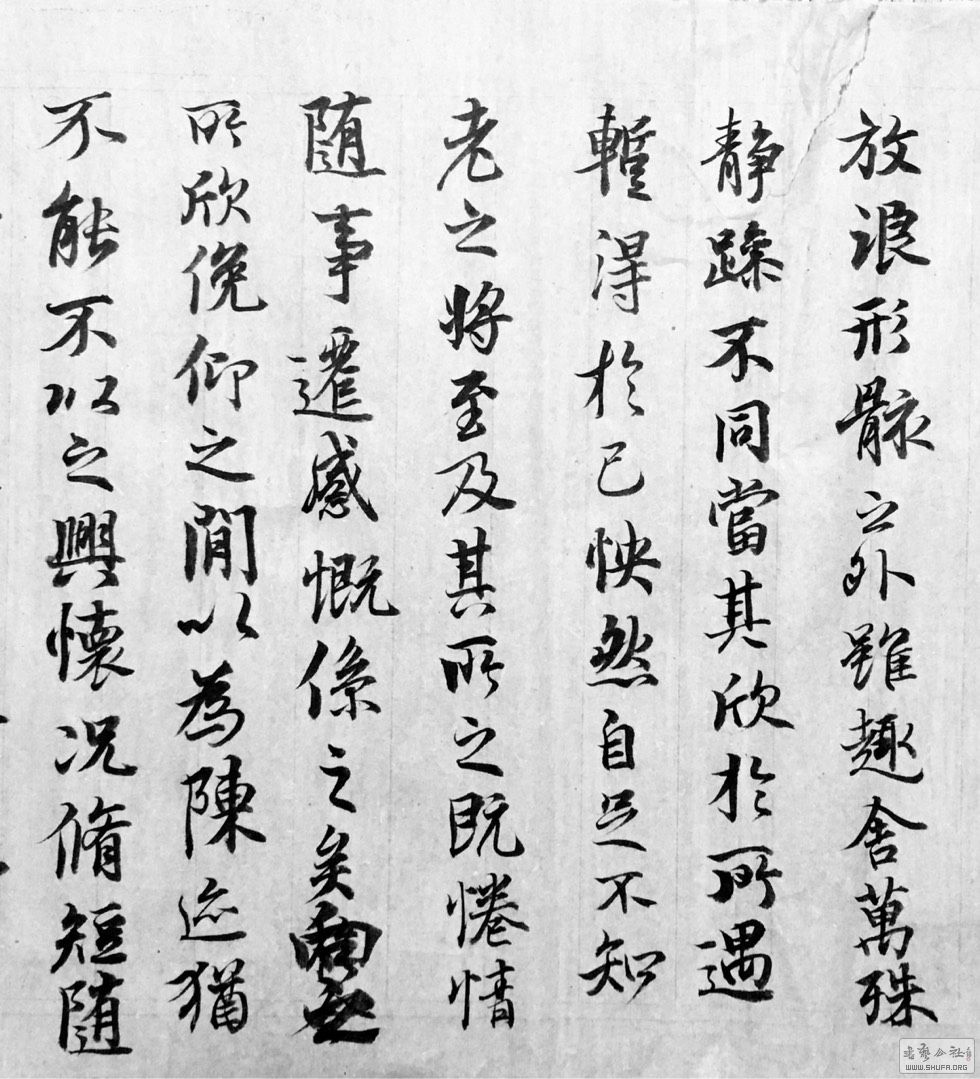 放浪形骸之外雖趣舍萬殊
静躁不同當其欣於所遇
蹔得於己怏然自足不知
老之將至及其所之既惓情
随事遷感慨係之矣向之
所欣俛仰之閒以為陳迹猶
不能不以之興懷况脩短随
書藝公社
WWW.SHUFA.ORG